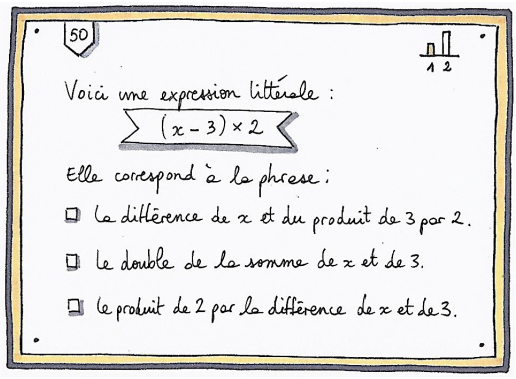 50
1 2
Voici une expression littérale :
(x - 3) × 2
Elle correspond à la phrase :
La différence de x et du produit de 3 par 2.
Le double de la somme de x et de 3.
Le produit de 2 par la différence de x et de 3.